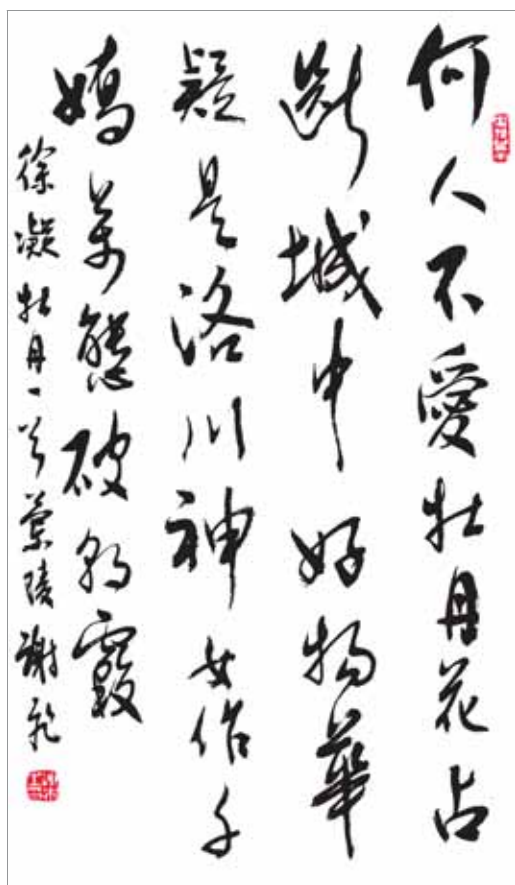 何人不愛牡丹花占
斷城中好物華
疑是洛川神女作千
嬌萬態破朝霞
徐凝牡丹一首蘭陵謝